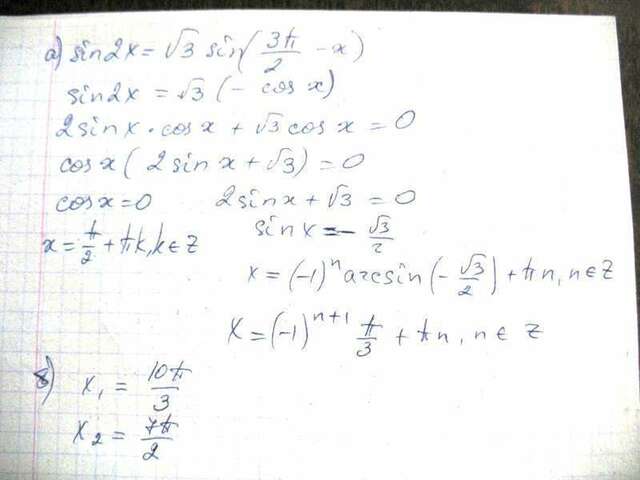 а) sin2x = √3 sin(3π/2 - x)
sin2x = √3 (- cos x)
2sin x · cos x + √3 cos x = 0
cos x (2 sin x + √3) = 0
cos x = 0 2 sin x + √3 = 0
sin x = - √3/2
x = π/2 + πk, k ∈ Z
x = (-1)^n arcsin(- √3/2) + πn, n ∈ Z
x = (-1)^(n+1) π/3 + πn, n ∈ Z
в) x₁ = 10π/3
x₂ = 7π/2